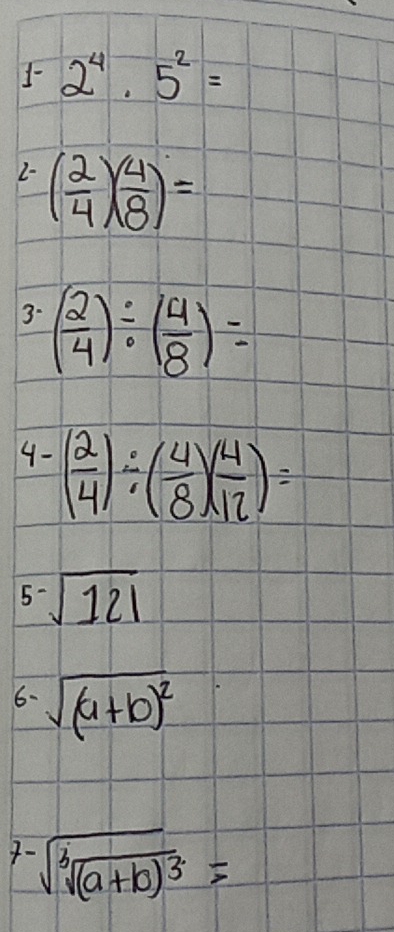 1- 2⁴ . 5² =
2- (2/4)(4/8) =
3- (2/4) ÷ (4/8) =
4- (2/4) ÷ (4/8)(4/12) =
5- √121
6- √(a+b)²
7- √∛(a+b)³ =